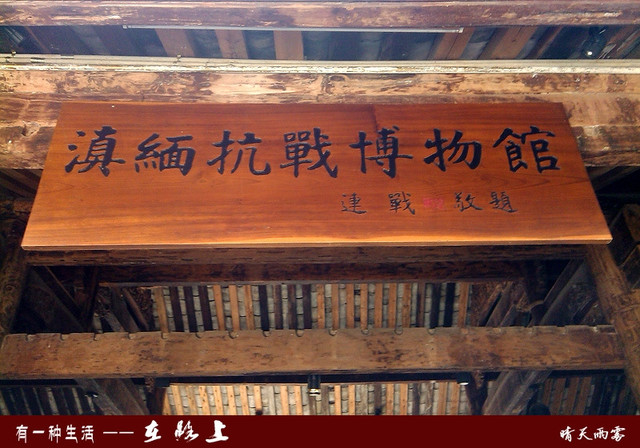 滇緬抗戰博物館
連戰 敬題
有一种生活 —— 在路上
晴天雨雾